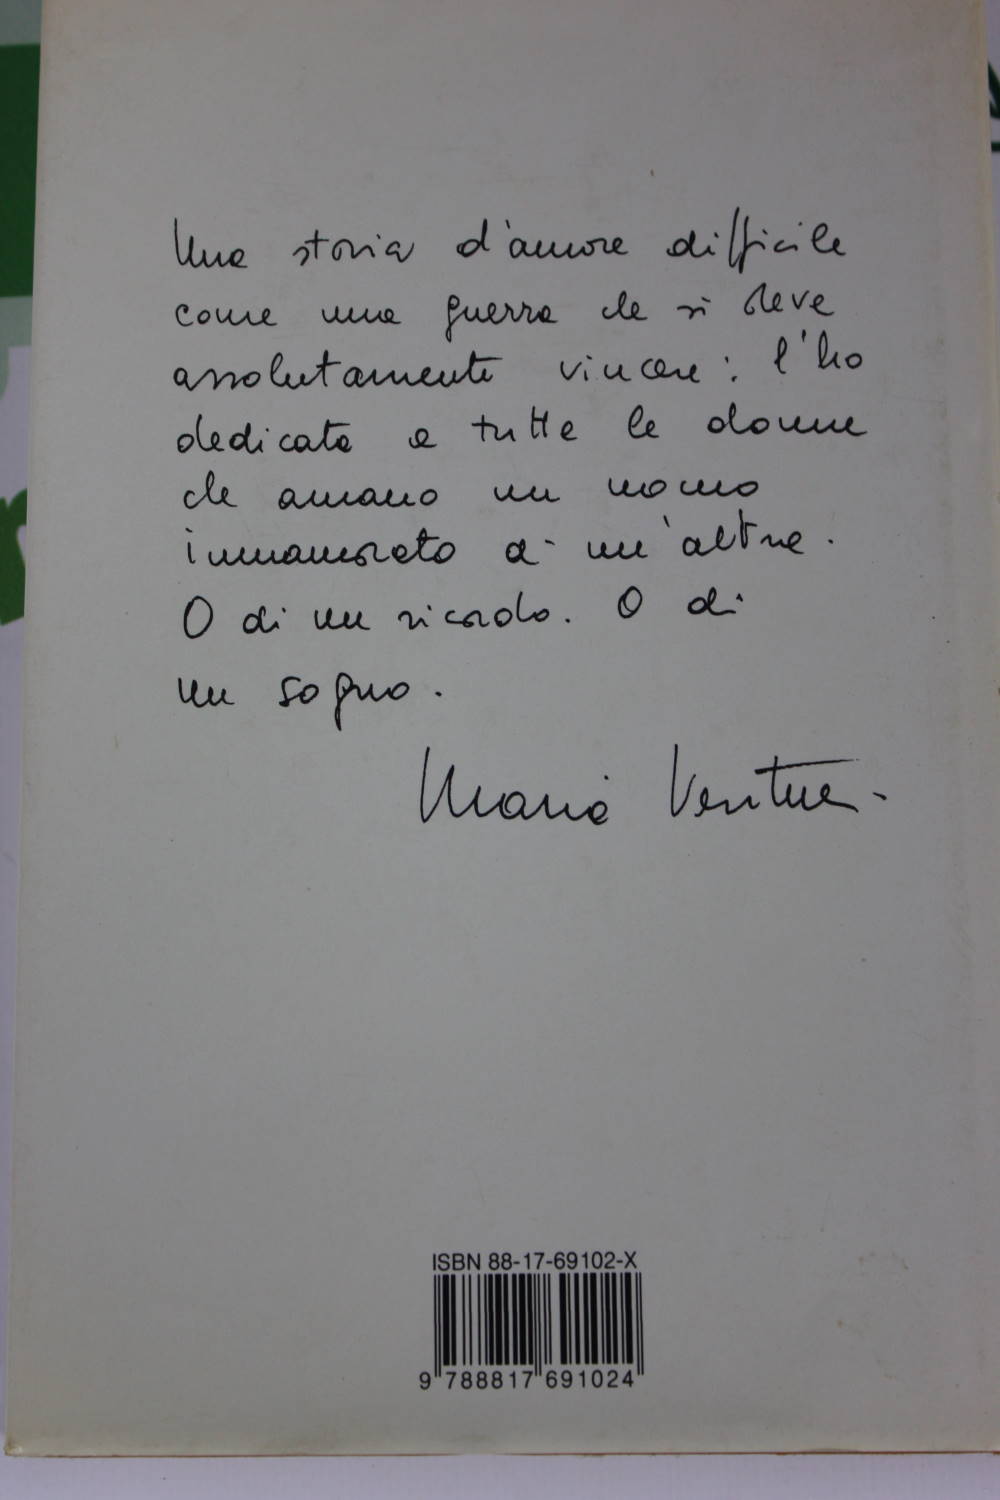 Una storia d'amore difficile
come una guerra che si deve
assolutamente vincere: l'ho
dedicata a tutte le donne
che amano un uomo
innamorato di un'altra.
O di un ricordo. O di
un sogno.
Maria Venturi
ISBN 88-17-69102-X
9 788817 691024